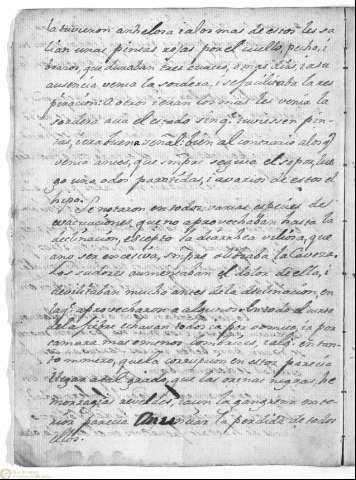 la tuvieron anhelosa i alos mas de estos les sa
lian unas pintas rojas por el cuello, pecho, i
brazos, que duraban tres, cuatro, o mas dias, i a su
ausencia venia la sordera, i se facilitaba la res
piracion: a otros i eran los mas les venia la
sordera acia el estado sin q.e tuviessen pin
tas, i era buena señal: bien al contrario alos q.e
venia antes, que smpre seguia el sopor, lue
go una o dos parotidas, i a varios de estos el
hipo.
Se notaron en todos varias especies de
evacuaciones, que no aprovechaban hasta la
declinacion, excepto la diarrhea viliosa, que
a no ser excesiva, smpre aliviaba la Cavera.
Los sudores aumentaban el dolor de ella, i
devilitaban mucho antes de la declinacion, en
la q.l aprovecharon a algunos. En todo el curso
dela fiebre echaron todos ia por vomito, ia por
camara mas o menos lombrices,
numero, que la corrupcion en estos parecia
llegar a tal grado, que las orinas negras, he
morragias rebeldes, i aun la gangrena exte
rior parecia la perdida de todos
ellos.